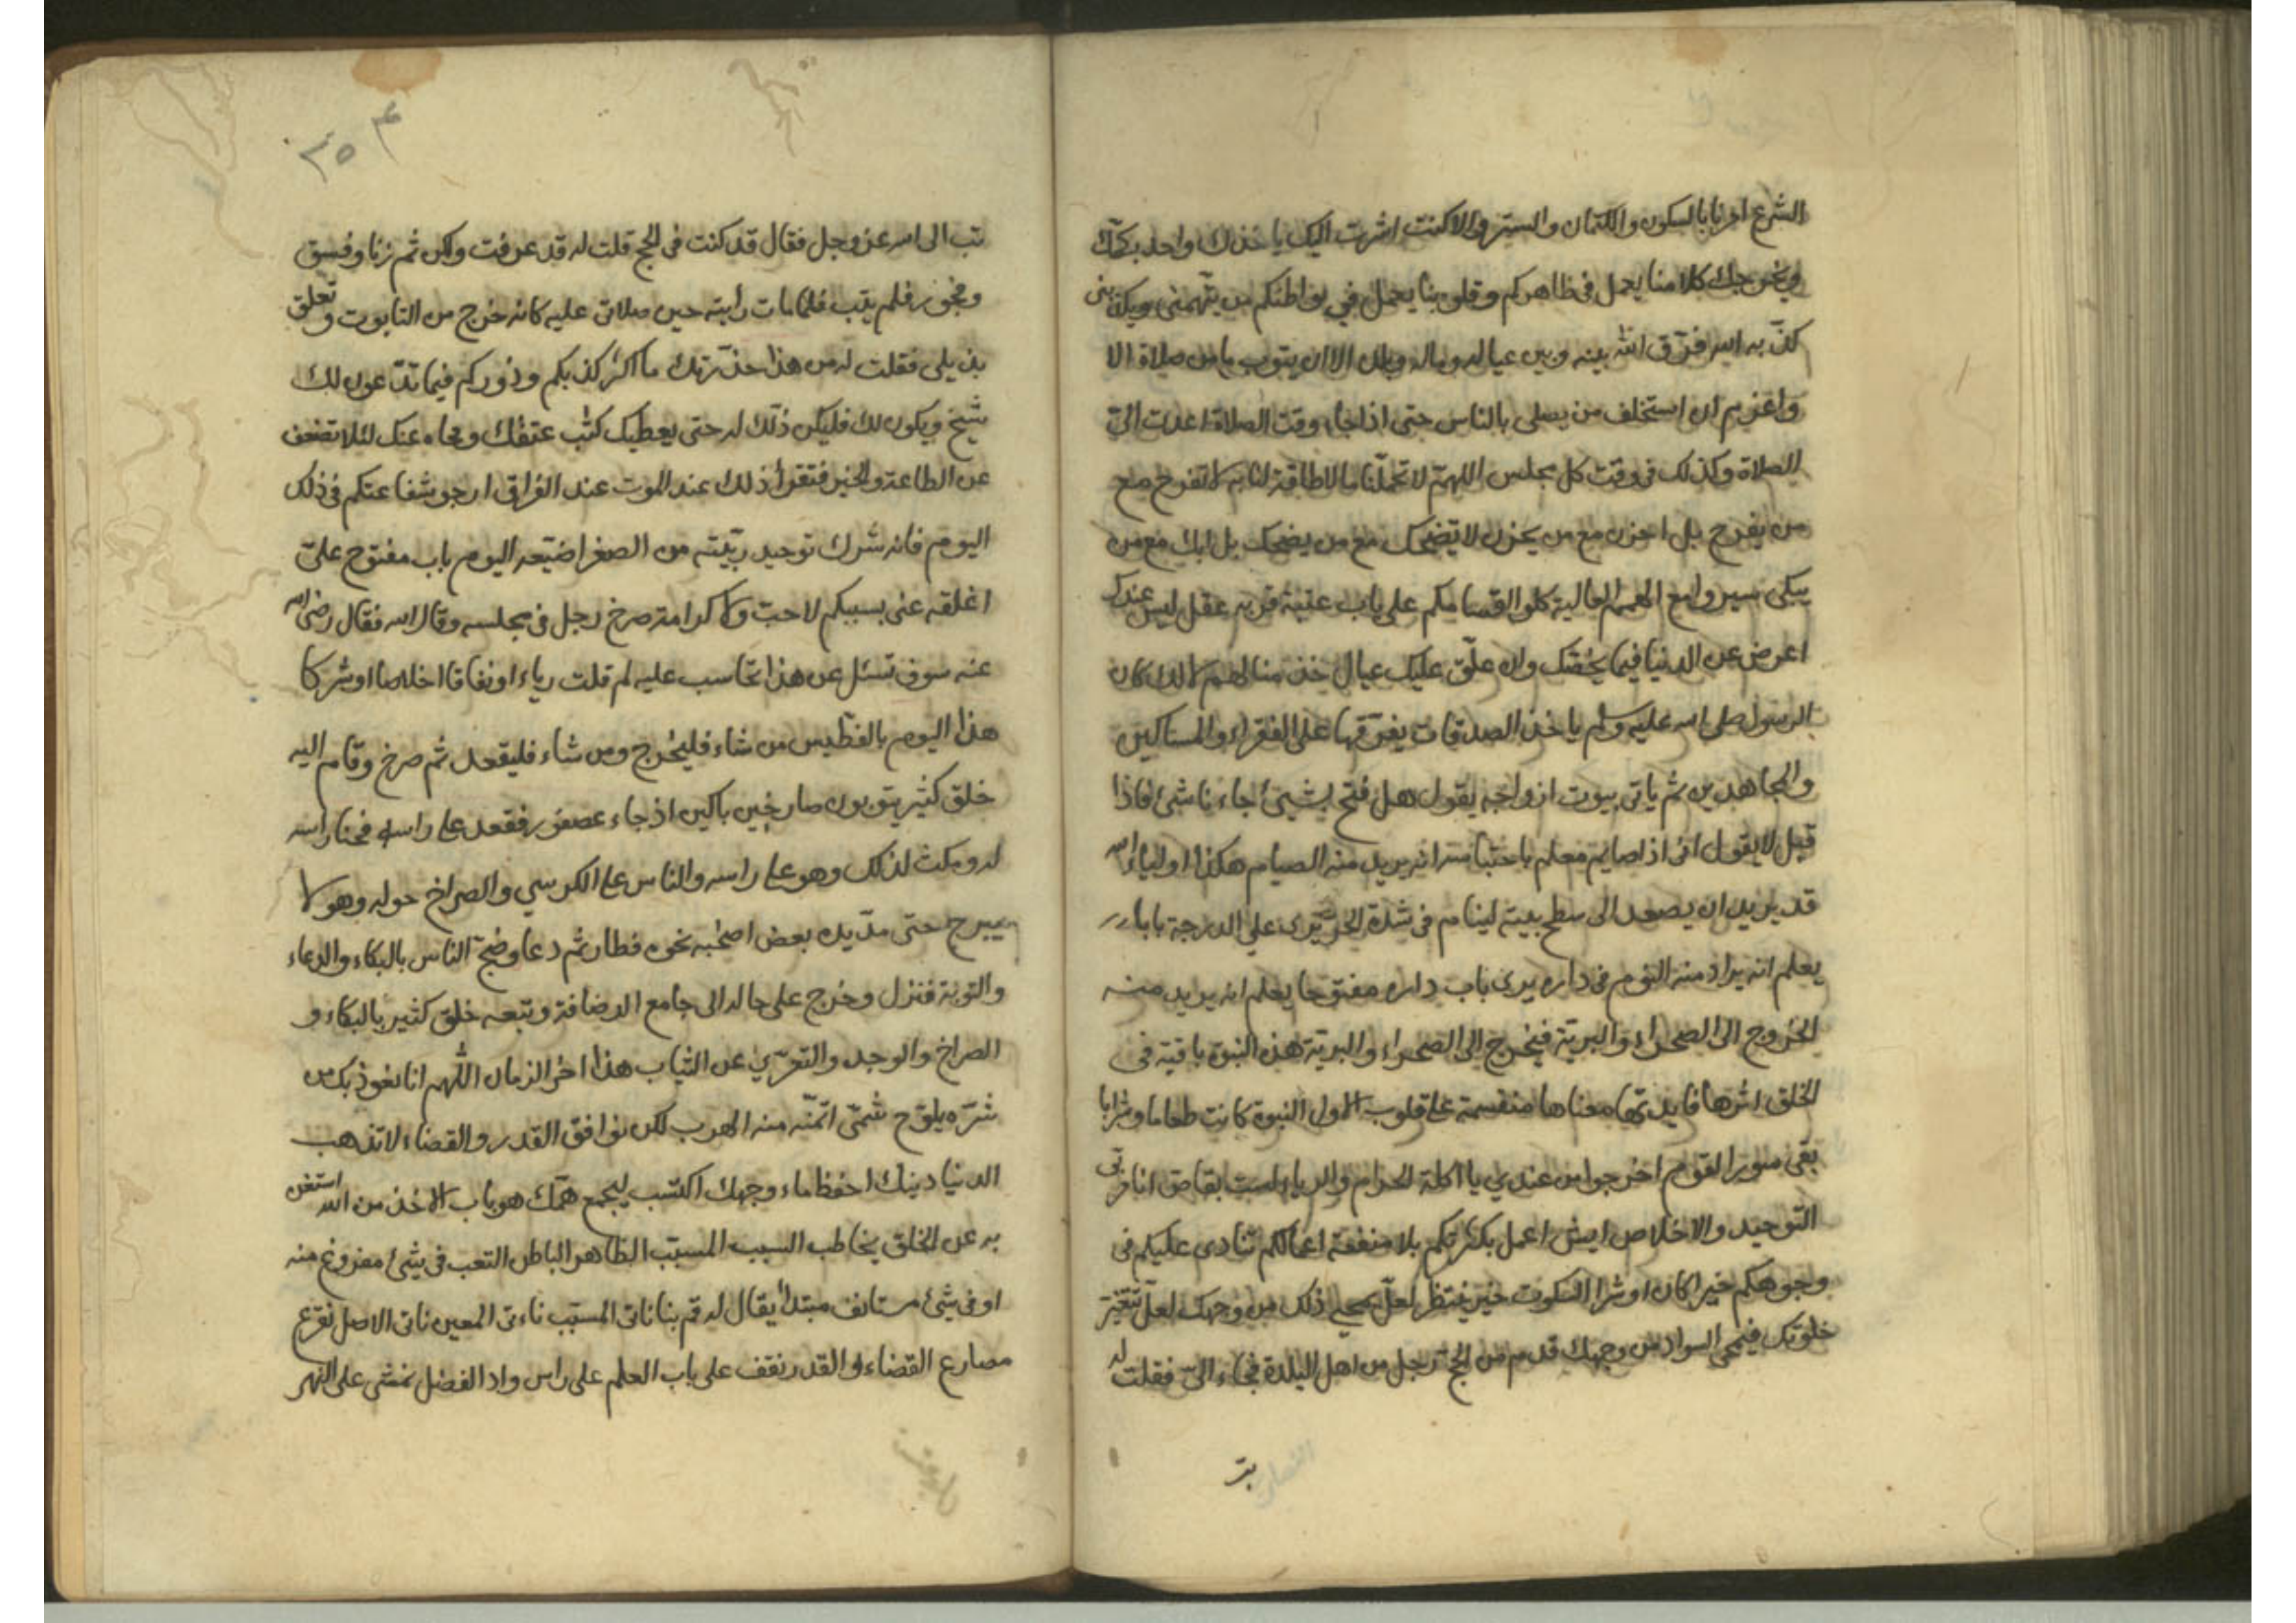 الشرع امرنا بالسكون والكتمان والستر والا كنت اشرت اليك ياخذك واحد بكمك
ويخرجك كلامنا يعمل في ظاهركم وقلوبنا يعمل في بواطنكم من يتهمني ويكذبني
كذبه الله فرق الله بينه وبين عياله وماله وبلده الا ان يتوب ما من صلاة الا
واعزم ان استخلف من يصلي بالناس حتى اذا جاء وقت الصلاة اعدت الي
الصلاة وكذلك في وقت كل مجلس اللهم لا تحملنا ما لا طاقة لنا به لا تفرح مع
من يفرح بل احزن مع من يحزن لا تضحك مع من يضحك بل ابك مع من
يبكي سيروا مع الهمم العالية كلوا اقسامكم على باب عتبة قربه عقل ليس عندك
اعرض عن الدنيا فيما يخصك وان علق عليك عيال خذ منا لهم لا لك كان
الرسول صلى الله عليه وسلم ياخذ الصدقات يفرقها على الفقراء والمساكين
والمجاهدين ثم ياتي بيوت ازواجه يقول هل فتح بشيئ جاءنا شئ فاذا
قيل لا يقول اني اذا صايم معلم باحتباسه انه يريد منه الصيام هكذا اولياء الله
قد يريد ان يصعد الى سطح بيته لينام في شدة الحر يرى على الدرجة بابا
يعلم انه يراد منه النوم في داره يرى باب داره مفتوحا يعلم انه يريد منه
الخروج الى الصحراء والبرية فيخرج الى الصحراء والبرية هذه النبوة باقية في
الخلق اثرها فايدتها معناها منقسمة على قلوب الاول النبوة كانت طعاما وشرابا
بقي سور القوم اخرجوا من عندي يا اكلة الحرام والربا لست بقاص انا قربي
التوحيد والاخلاص ايش اعمل بكثرتكم بلا منفعة اعمالكم تنادى عليكم في
وجوهكم خيرا كان او شرا السكوت خير ننتظر لعل يمحى ذلك من وجهك لعل تتغير
خلوتك فيمحى السواد من وجهك قدم من الحج رجل من اهل البلدة فجاء الي فقلت له
تب
٣٥٤
تب الى الله عز وجل فقال قد كنت في الحج قلت له قد عرفت ولكن ثم زنا وفسق
وفجور فلم يتب فلما مات رأيته حين صلاتي عليه كانه خرج من التابوت وتعلق
بذيلي فقلت له من هذا حذرتك ما اكثر كذبكم وزوركم فيما تدعون لك
شيخ ويكون لك فليكن ذلك له حتى يعطيك كتب عتقك ومحاه عنك لئلا تضعف
عن الطاعة والخير فتقرأ ذلك عند الموت عند الفراق ارجو شفاعتكم في ذلك
اليوم فانه شرك توحيد ربيته من الصغر اضيعه اليوم باب مفتوح علي
اغلقه عني بسببكم لا حب ولا كرامة صرخ رجل في مجلسه وقال الله فقال رضي الله
عنه سوف تسئل عن هذا تحاسب عليه لم قلت رياء او نفاقا اخلاصا او شركا
هذا اليوم بالفطيس من شاء فليخرج ومن شاء فليقعد ثم صرخ وقام اليه
خلق كثير يتوبون صارخين باكين اذ جاء عصفور فقعد على راسه فحنا راسه
له ومكث لذلك وهو على راسه والناس على الكرسي والصراخ حوله وهو لا
يبرح حتى مد يده بعض اصحبه نحوه فطار ثم دعا وضج الناس بالبكاء والدعاء
والتوبة فنزل وخرج على حاله الى جامع الرصافة وتبعه خلق كثير بالبكاء و
الصراخ والوجد والتعري عن الثياب هذا اخر الزمان اللهم انا نعوذ بك من
شره يلوح شئ اتمنه منه الهرب لكن نوافق القدر والقضاء لا تذهب
الدنيا دينك احفظ ماء وجهك اكتسب ليجمع همك هو باب الاخذ من الله استغن
به عن الخلق يخاطب السبب المسبب الظاهر الباطن التعب في شئ مفروغ منه
او في شئ مستانف مبتدأ يقال له قم بنا ناتي المسبب ناتي المعين ناتي الاصل نقرع
مصارع القضاء والقدر نقف على باب العلم على راس واد الفضل نمشي على النهر